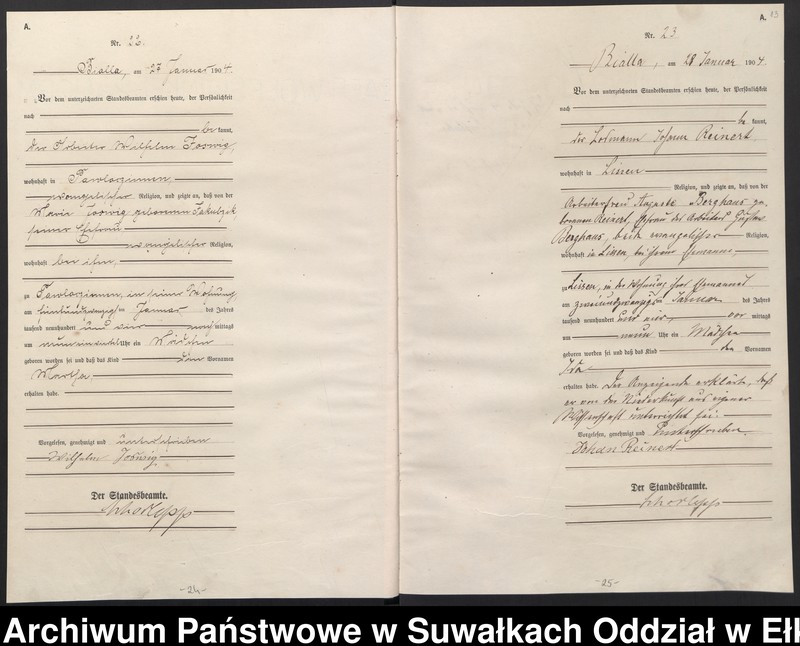 A.
Nr. 22.
Bialla, am 27 Januar 1904.
Vor dem unterzeichneten Standesbeamten erschien heute, der Persönlichkeit
nach
be kannt,
der Arbeiter Wilhelm
wohnhaft in
evangelischer Religion, und zeigte an, daß von der
geborenen
seiner Ehefrau
evangelischer Religion,
wohnhaft bei ihm,
zu in seiner Wohnung
am fünfundzwanzigsten Januar des Jahres
tausend neunhundert und vier mittags
um Uhr ein Mädchen
geboren worden sei und daß das Kind den Vornamen
Martha
erhalten habe.
Vorgelesen, genehmigt und unterschrieben
Wilhelm
Der Standesbeamte.
-24-
A.
Nr. 23.
Bialla, am 28 Januar 1904.
Vor dem unterzeichneten Standesbeamten erschien heute, der Persönlichkeit
nach
be kannt,
der Losmann Johann Reinert
wohnhaft in Lissen
Religion, und zeigte an, daß von der
Arbeiterfrau Auguste Berghaus ge-
borenen Reinert, Ehefrau des Arbeiters Gustav
Berghaus, beide evangelischer Religion,
wohnhaft in Lissen, bei ihrem Ehemanne,
zu Lissen, in der Wohnung ihres Ehemannes
am zweiundzwanzigsten Januar des Jahres
tausend neunhundert und vier, vor mittags
um neun Uhr ein Mädchen
geboren worden sei und daß das Kind den Vornamen
Ida
erhalten habe. Der Anzeigende erklärte, daß
er von der Niederkunft aus eigener
Wissenschaft unterrichtet sei.
Vorgelesen, genehmigt und unterschrieben.
Johan Reinert
Der Standesbeamte.
-25-
Archiwum Państwowe w Suwałkach Oddział w Eł